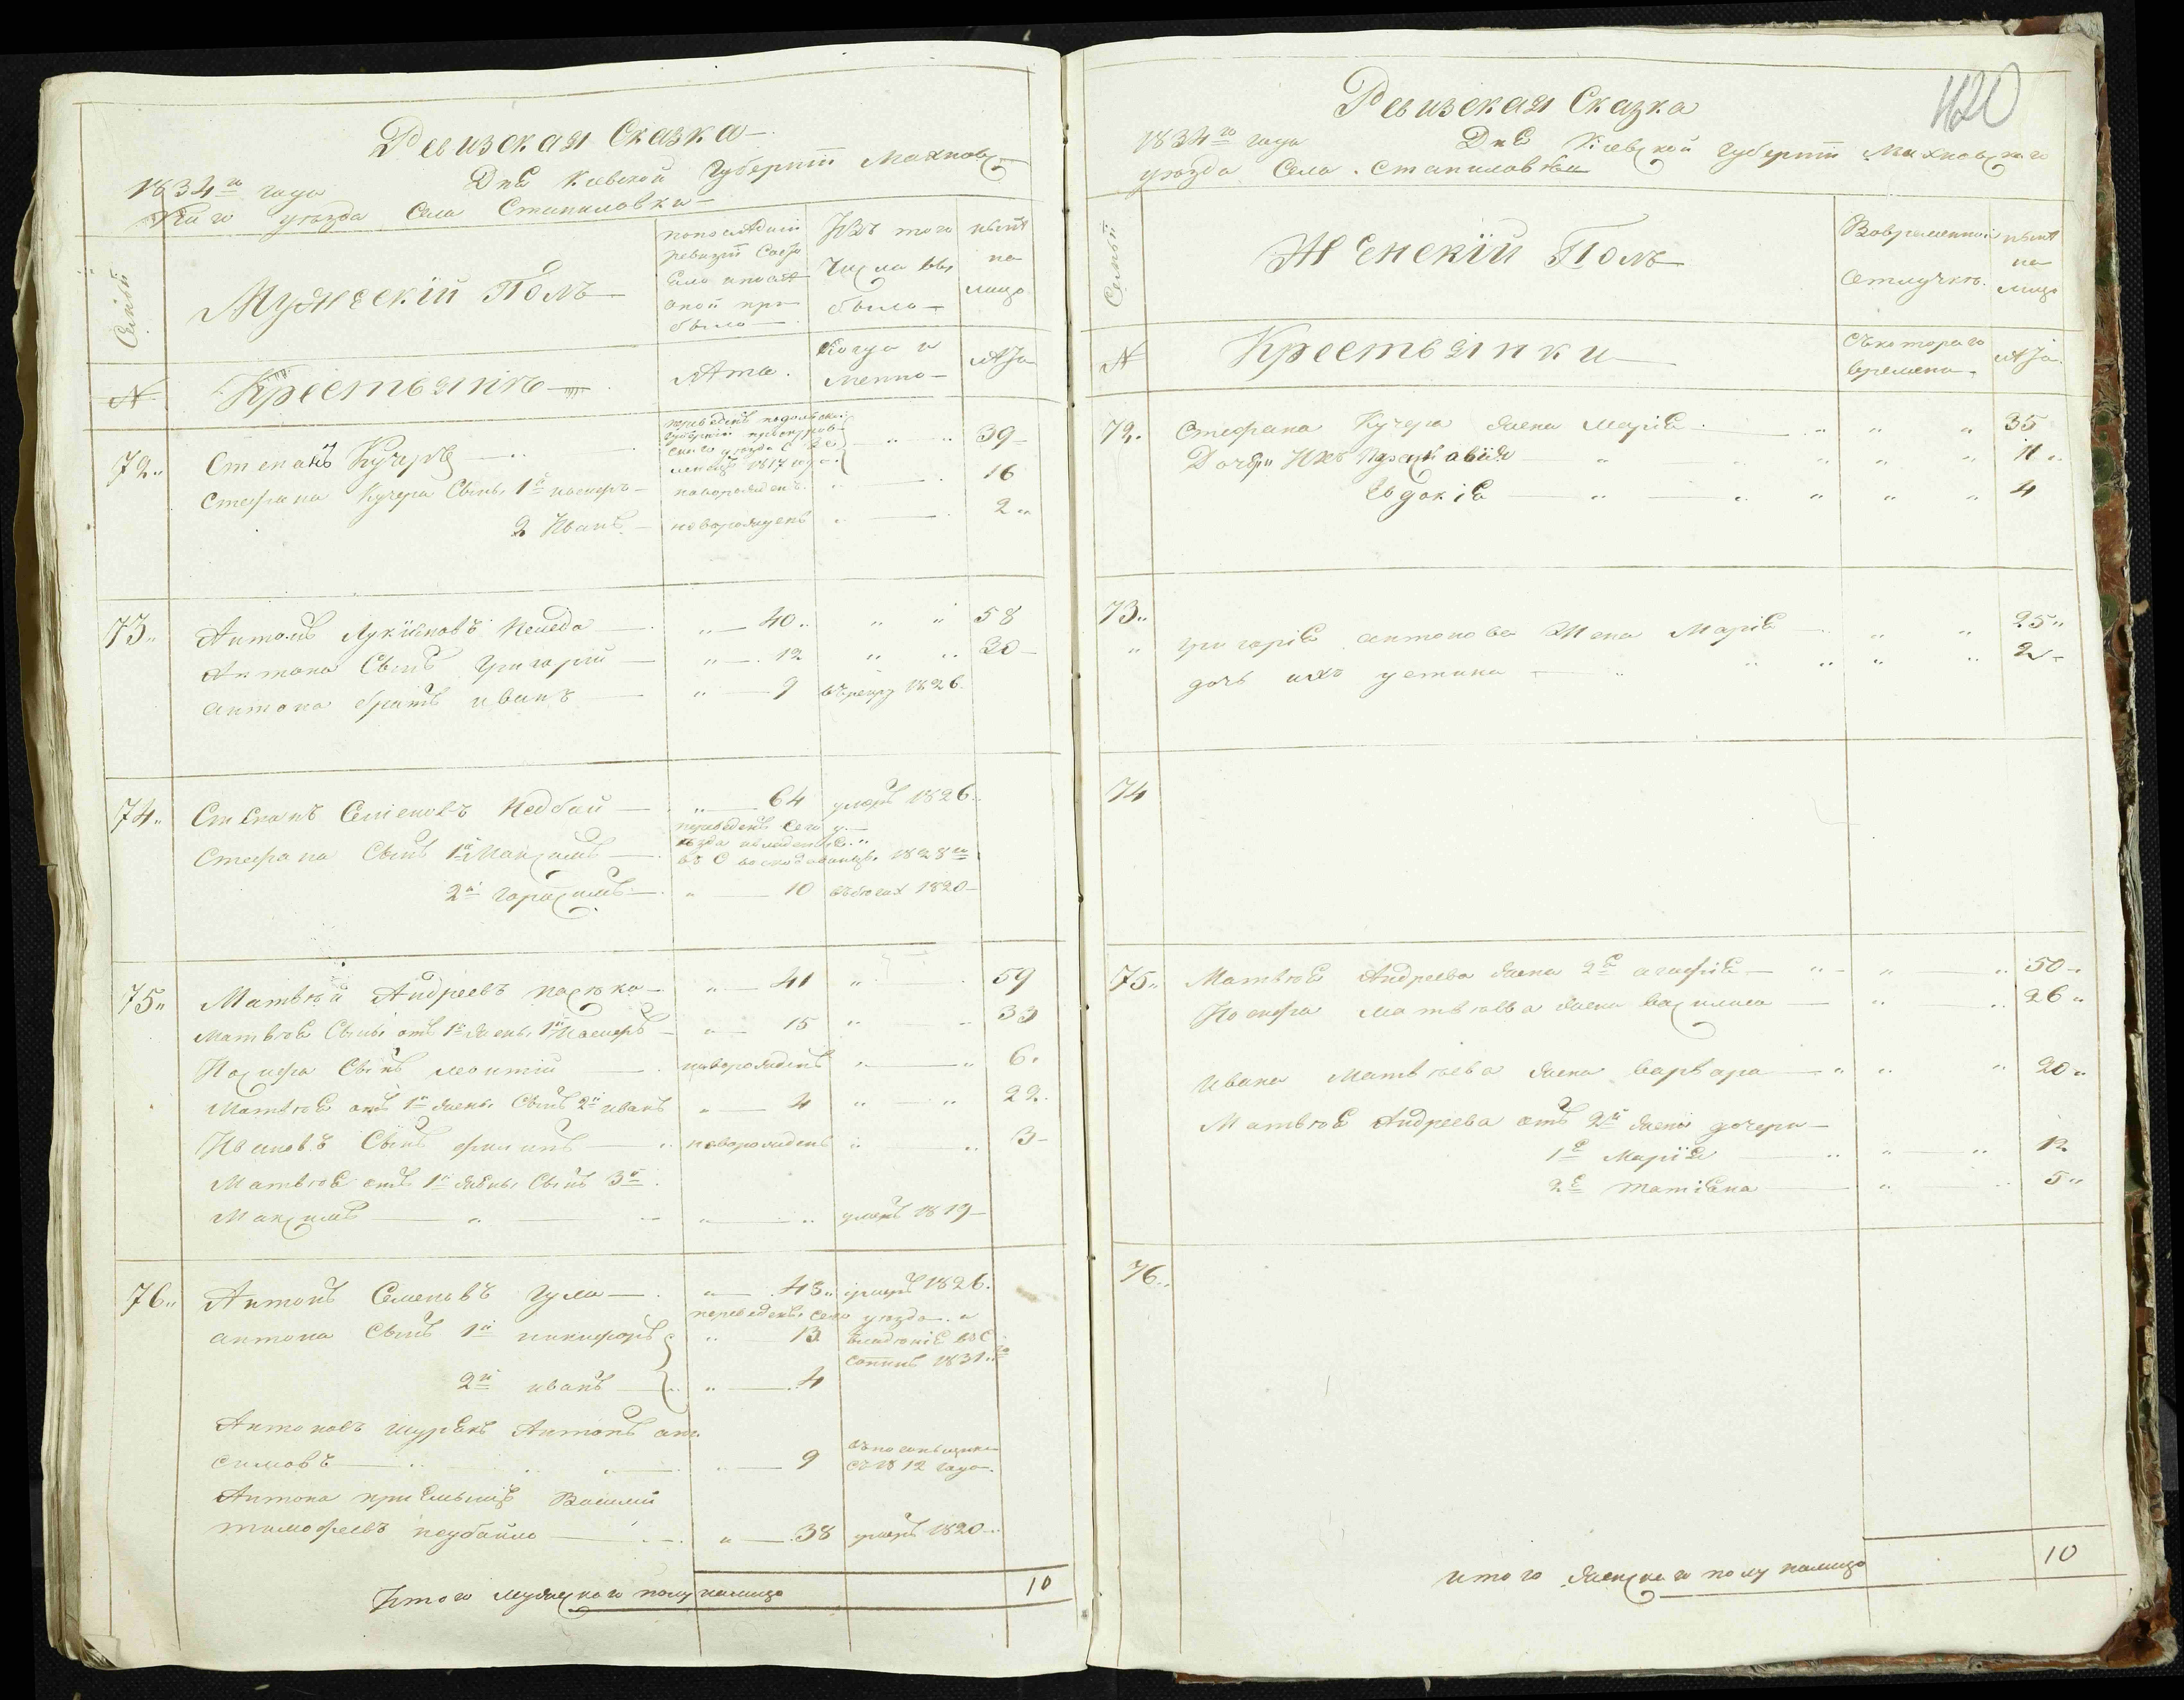 Ревизская Сказка
1834го года Дня Киевской Губернїи Махновс
каго уезда Села Станиловки
Семьи
Мужескїй Полъ
По последней ревизїи состояло и после оной прибыло
Изъ того числа выбыло
ныне на лицо
№
Крестьянъ
Лета.
Когда и менно
Лета
72.. Степанъ Кучеръ 39
Стефана Кучера Сынъ 1й новорожденъ 16
2 Иванъ новорожденъ 2..
73.. Антонъ Лукїяновъ 40.. 58
Антона Сынъ Григорїй 12 30
Антона братъ иванъ 9 въ рекру 1826
74.. Степанъ Семеновъ Недбай 64 умеръ 1826..
переведенъ сего у
Стефана Сынъ 1й Максимъ 1828го
2й гарасимъ 10 въ бегах 1820
75.. Матвей Андреевъ 41 59
Матвея Сынъ отъ 1й жены 1й Иосифъ 15 33
Иосифа Сынъ леонтїй новорожденъ 6.
Матвея отъ 1й жены Сынъ 2й иванъ 4 22.
Ивановъ Сынъ филипъ новорожденъ 3
Матвея отъ 1й жены Сынъ 3й
Максимъ умеръ 1819
76.. Антонъ Семеновъ Гула 43.. умеръ 1826.
переведенъ сего уезда
Антона Сынъ 1й никифоръ 13
1831..го
2й иванъ 4
Антоновъ шурінъ Антонъ они
симовъ 9 съ 1812 года.
Антона прїемышъ Василїй
тимофеевъ неубайло 38 умеръ 1820
Итого мужескаго полу налицо 10
420
Ревизская Сказка
1834го года Дня Кїевской Губернїи Махновскаго
уезда Села. Станиловки
Семьи
Женскїй Полъ
Вовременной отлучке.
ныне на лицо
№
Крестьянки
Съкотораго времени
Лета.
72. Стефана Кучера жена Марїя 35
Дочери Ихъ 11..
Евдокїя 4
73..
Григорїя антонова Жена Марїя 25..
дочь ихъ устина 2
74
75.. Матвея Андреева жена 2я агафїя 50
Иосифа матвеева жена василиса 26..
Ивана Матвеева жена варвара 20..
Матвея Андреева отъ 2й жены дочери
1я Марїя 12
2я татїяна 5..
76..
итого женскаго полу налицо 10